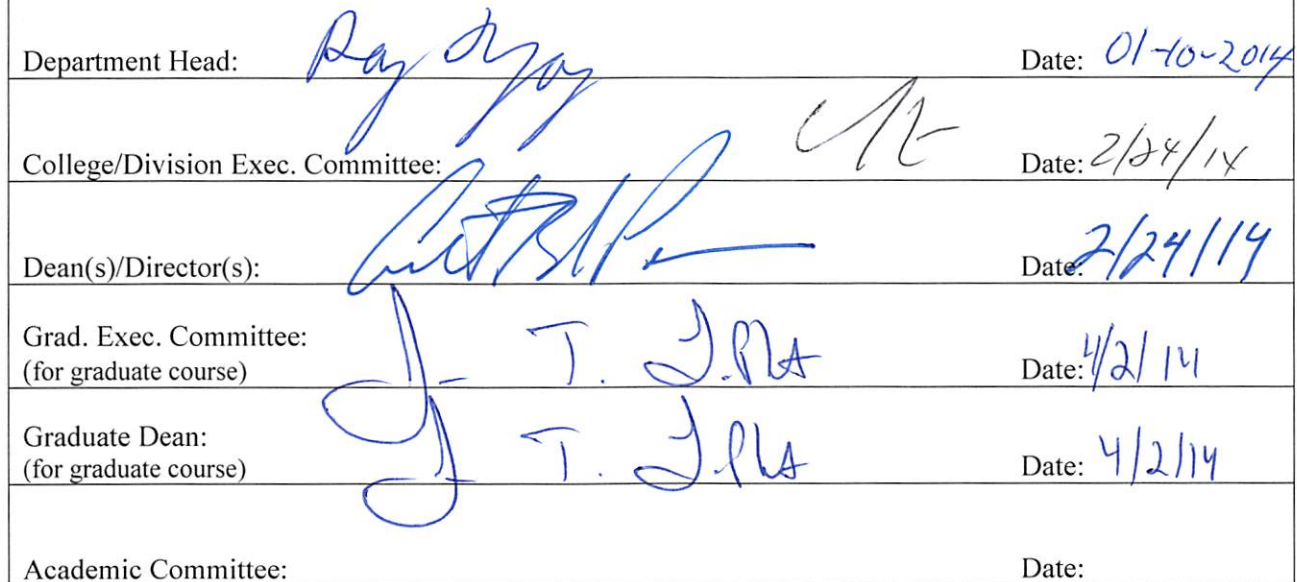 Department Head: Date: 01-10-2014
College/Division Exec. Committee: Date: 2/24/14
Dean(s)/Director(s): Date: 2/24/14
Grad. Exec. Committee:
(for graduate course) T. Date: 4/2/14
Graduate Dean:
(for graduate course) T. Date: 4/2/14
Academic Committee: Date: